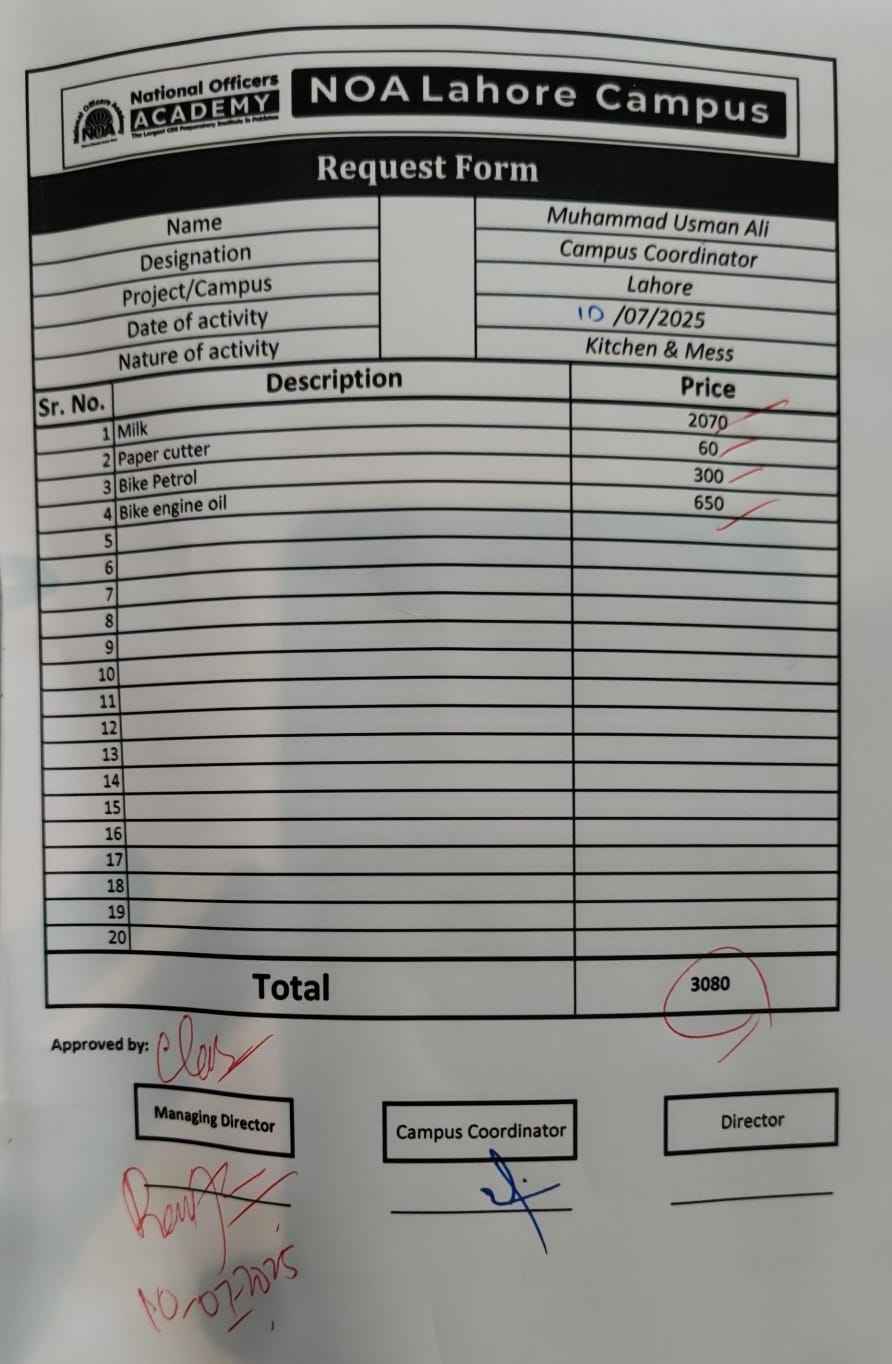 National Officers
ACADEMY
NOA
NOA Lahore Campus
Request Form
Name Muhammad Usman Ali
Designation Campus Coordinator
Project/Campus Lahore
Date of activity 10/07/2025
Nature of activity Kitchen & Mess
Sr. No. Description Price
1 Milk 2070
2 Paper cutter 60
3 Bike Petrol 300
4 Bike engine oil 650
5
6
7
8
9
10
11
12
13
14
15
16
17
18
19
20
Total 3080
Approved by:
Managing Director Campus Coordinator Director
10-07-2025